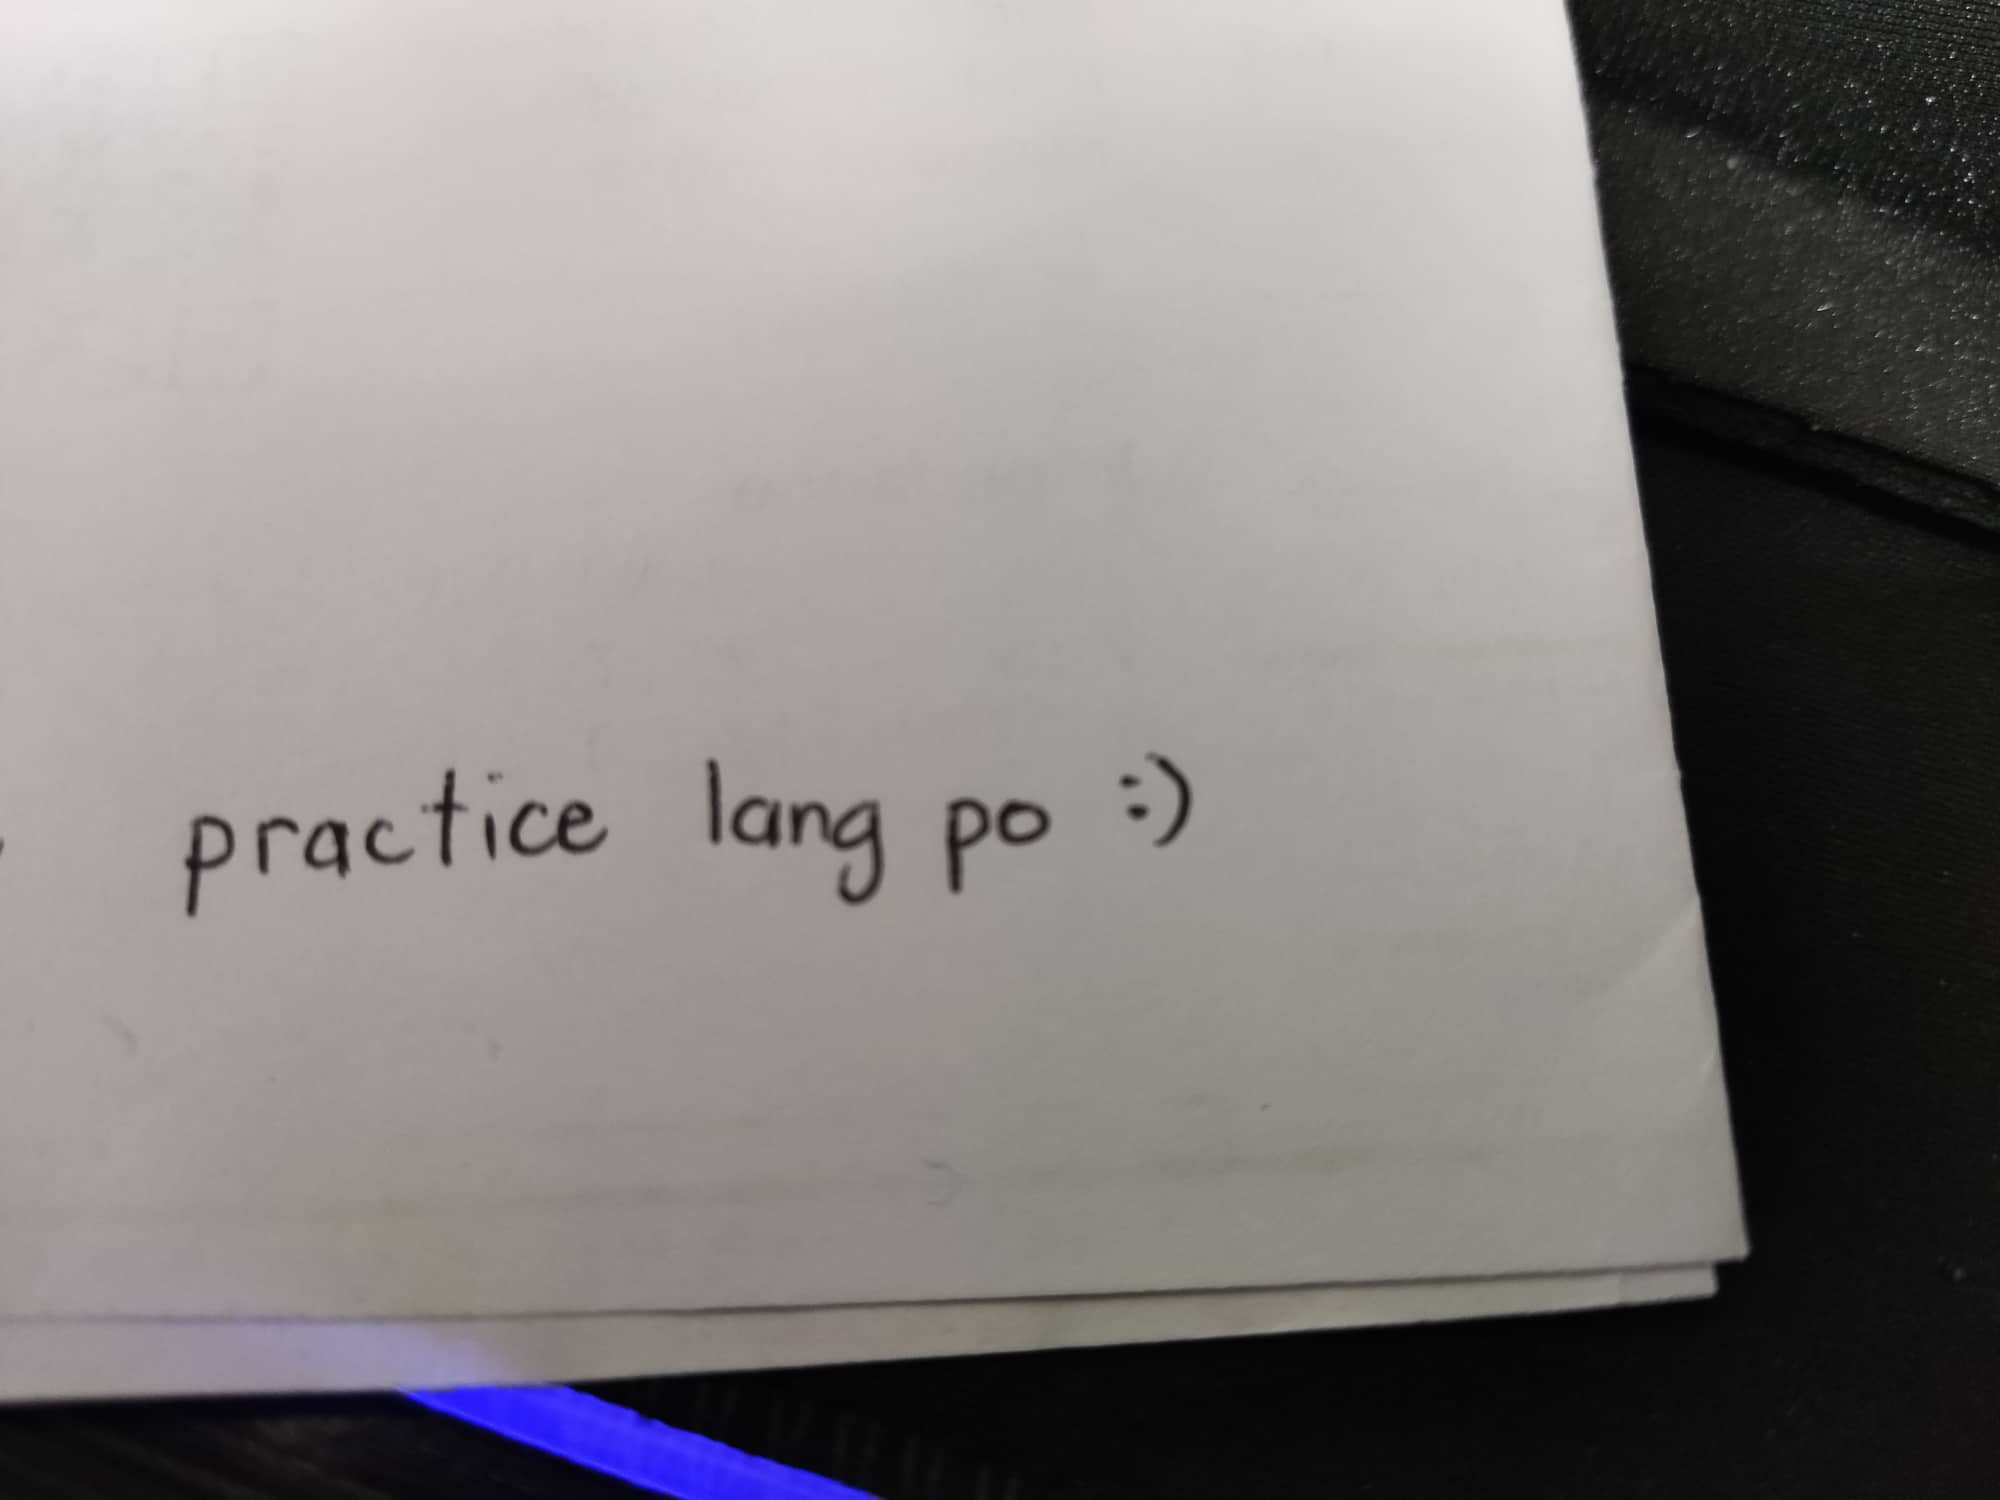 practice lang po :)